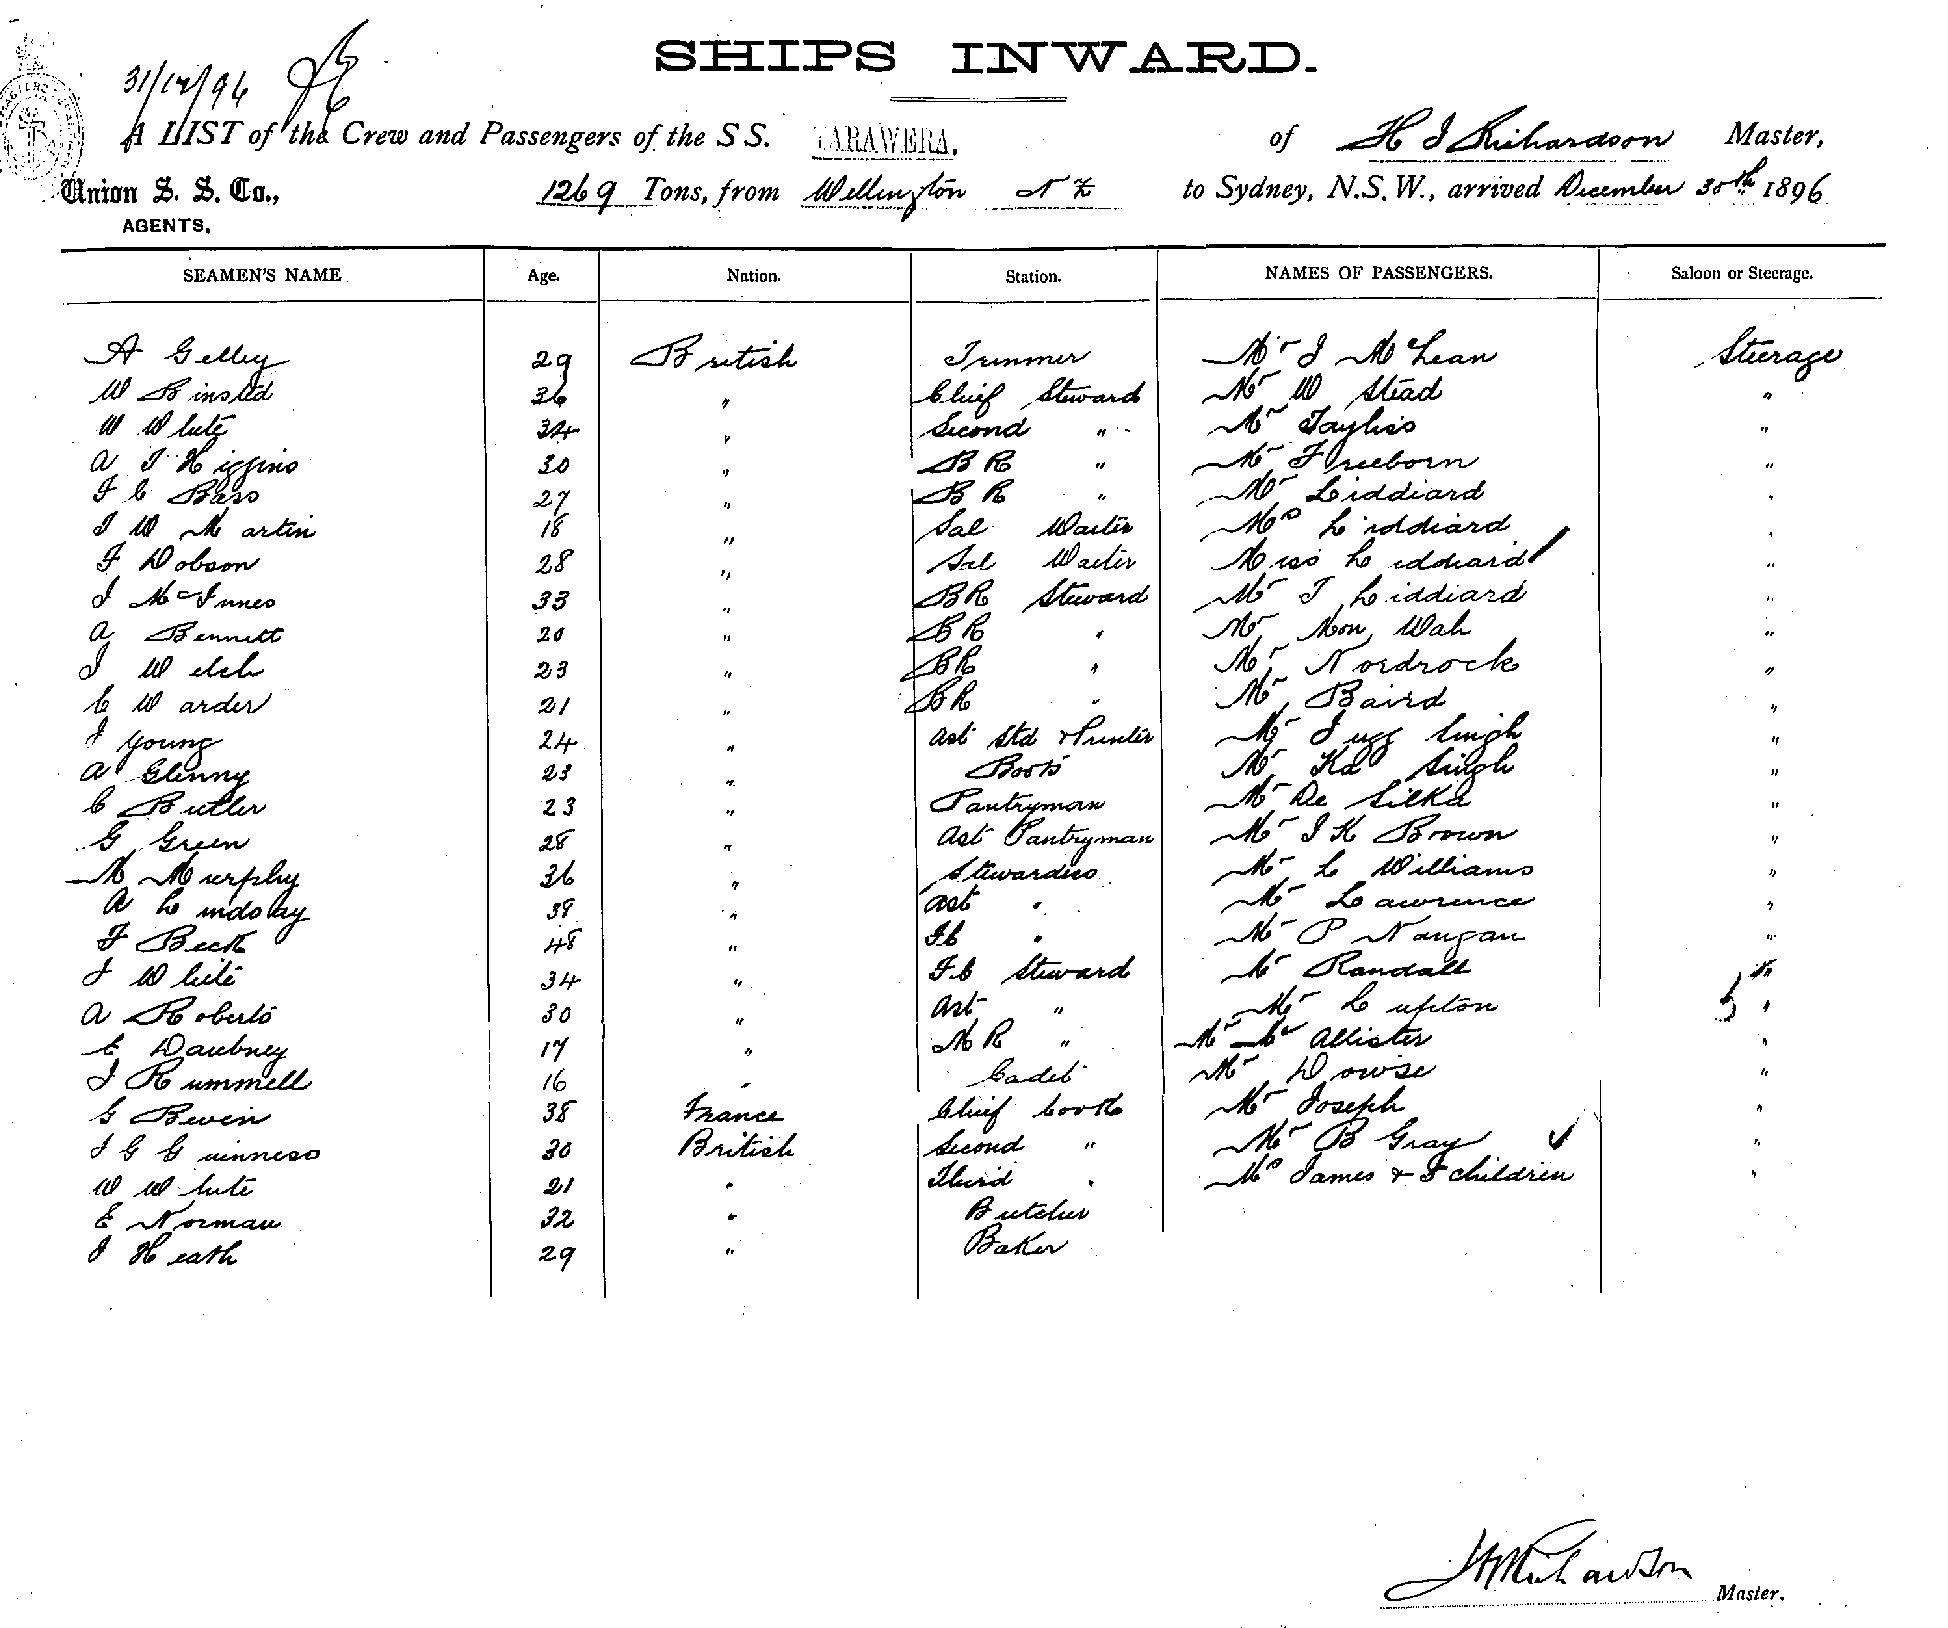 SHIPS INWARD.
31/12/96
A LIST of the Crew and Passengers of the S S. TARAWERA, of H J Richardson Master,
Union S. S. Co., 1269 Tons, from Wellington N Z to Sydney, N.S.W., arrived December 30th 1896
AGENTS.
SEAMEN'S NAME Age. Nation. Station. NAMES OF PASSENGERS. Saloon or Steerage.
A Gelley 29 British Trimmer Mr J McLean Steerage
W Binsted 36 " Chief Steward Mr W Stead "
W White 34 " Second " Mr Tayliss "
A J Higgins 30 " B R " Mr Freeborn "
F C Bass 27 " B R " Mr Liddiard "
J W Martin 18 " Sal Waiter Mrs Liddiard "
F Dobson 28 " Sal Waiter Miss Liddiard "
J McInnes 33 " BR Steward Mr T Liddiard "
A Bennett 20 " BR " Mr Mon Wah "
J Welch 23 " BR " Mr Nordrock "
C Warder 21 " BR " Mr Baird "
J Young 24 " Ast Std & Printer Mr Jugg Singh "
A Glenny 23 " Boots Mr Ka Singh "
C Butler 23 " Pantryman Mr De Silka "
G Green 28 " Ast Pantryman Mr J K Brown "
M Murphy 36 " Stewardess Mr L Williams "
A Lindsay 39 " Ast " Mr Lawrence "
F Beck 48 " F.C " Mr P Naugan "
J White 34 " F.C Steward Mr Randall "
A Roberts 30 " Ast " Mr Lupton "
E Daubney 17 " M R " Mr McAllister "
J Rummell 16 " Cadet Mr Dowse "
G Bevin 38 France Chief Cook Mr Joseph "
J G Guinness 30 British Second " Mr B Gray "
W White 21 " Third " Mrs James & 5 children "
E Norman 32 " Butcher
J Heath 29 " Baker
H Richardson Master.